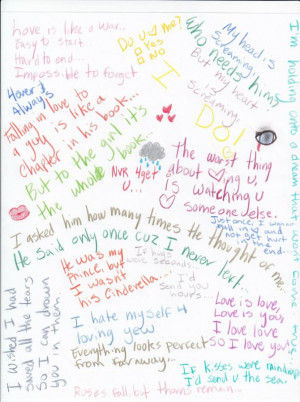 Love is like a war..
Easy to start..
Hard to end...
Impossible to forget
Do u ♡ me?
□ Yes
□ No
I
DO!
My head is
Screaming
Who needs him?
But my heart
is
Screaming..
I'm holding onto a dream that
4ever &
Always
Falling in love to
a guy is like a
chapter in his book...
But to the girl it's
the whole book..
NVR 4get
U...
The worst thing
about ♡ing u,
is watching u
♡ someone else.
Just once, I want
2 fall in ♡ and
not get hurt
in the end.
I asked him how many times He thought of me..
He said only once cuz I never left..
He was my
Prince, but
I wasn't
his Cinderella...
If hugs
seconds..
I'd
send you
hours..
I wished I had
saved all the tears
so I can drown
you in them.
I hate myself 4
loving you
Everything looks perfect
from far away...
Love is love,
Love is you,
I love love
So I love you!
If kisses were raindrops
I'd send u the sea.
Roses fall, but thorns remain...